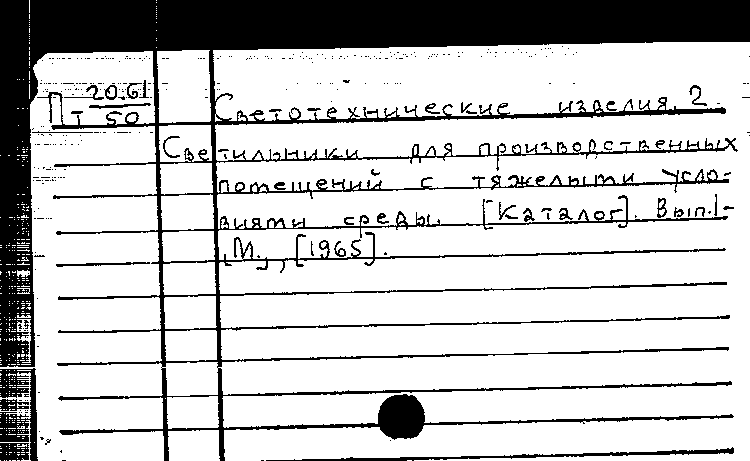 Пт 20.61/50 Светотехнические изделия. 2.
Светильники для производственных
помещений с тяжелыми усло-
виями среды. [Каталог]. Вып.1-
[М.], [1965].